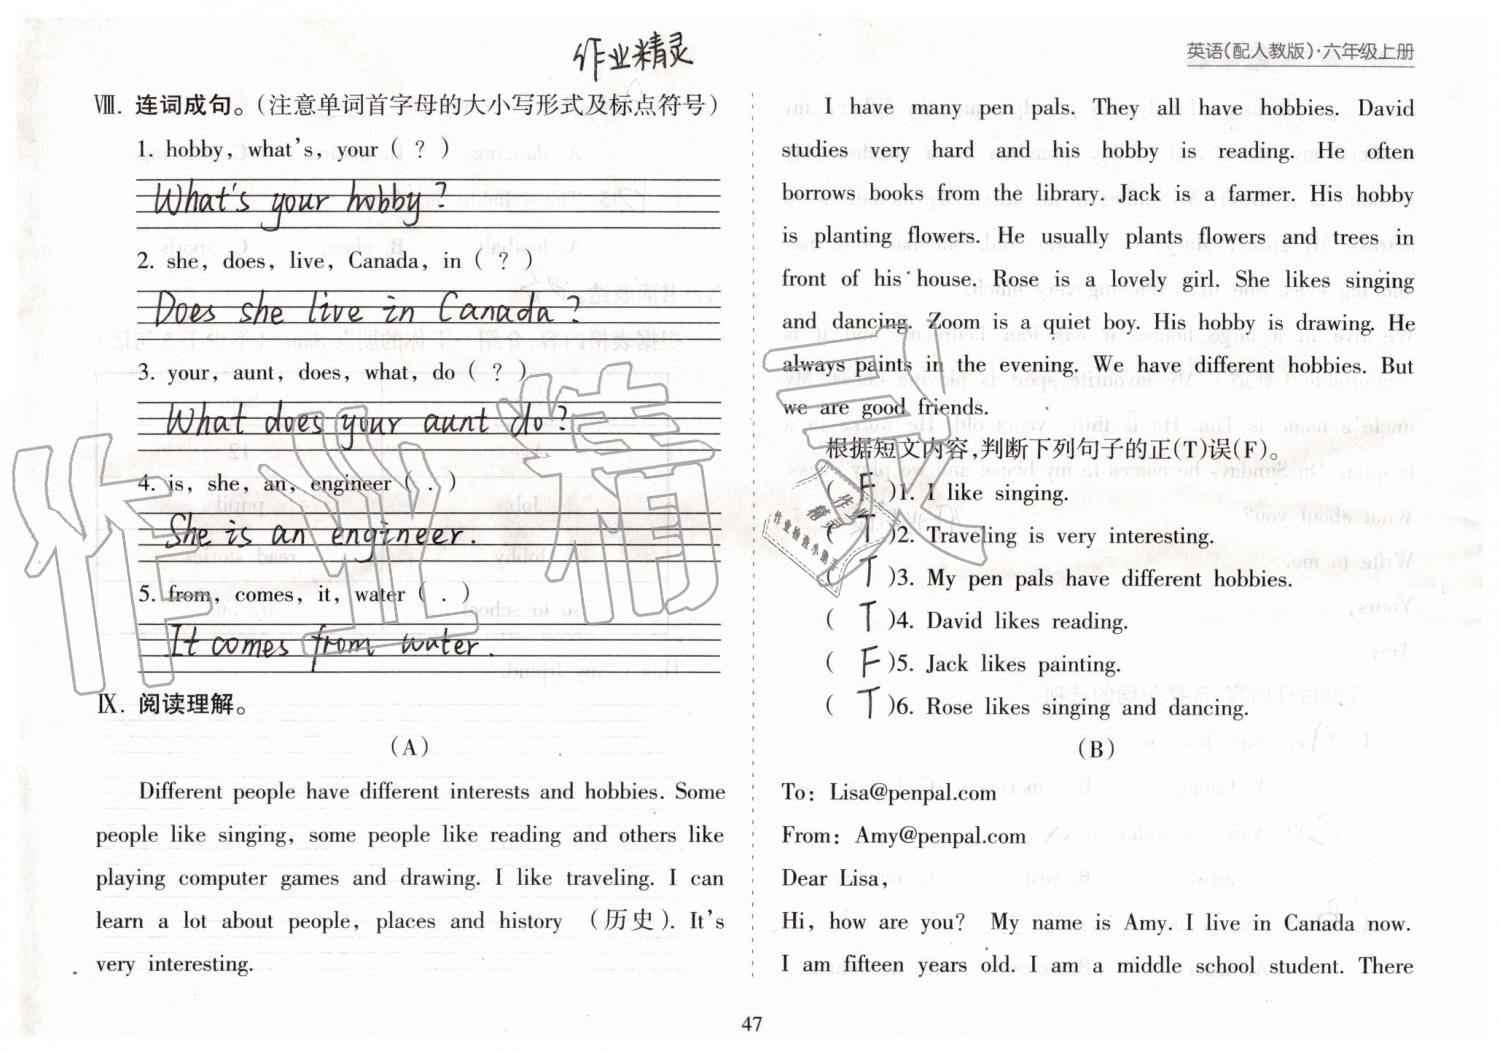 作业精灵
英语(配人教版)·六年级上册
Ⅷ. 连词成句。(注意单词首字母的大小写形式及标点符号)
1. hobby, what's, your ( ? )
What's your hobby?
2. she, does, live, Canada, in ( ? )
Does she live in Canada?
3. your, aunt, does, what, do ( ? )
What does your aunt do?
4. is, she, an, engineer ( . )
She is an engineer.
5. from, comes, it, water ( . )
It comes from water.
Ⅸ. 阅读理解。
(A)
Different people have different interests and hobbies. Some
people like singing, some people like reading and others like
playing computer games and drawing. I like traveling. I can
learn a lot about people, places and history (历史). It's
very interesting.
I have many pen pals. They all have hobbies. David
studies very hard and his hobby is reading. He often
borrows books from the library. Jack is a farmer. His hobby
is planting flowers. He usually plants flowers and trees in
front of his house. Rose is a lovely girl. She likes singing
and dancing. Zoom is a quiet boy. His hobby is drawing. He
always paints in the evening. We have different hobbies. But
we are good friends.
根据短文内容,判断下列句子的正(T)误(F)。
( F )1. I like singing.
( T )2. Traveling is very interesting.
( T )3. My pen pals have different hobbies.
( T )4. David likes reading.
( F )5. Jack likes painting.
( T )6. Rose likes singing and dancing.
(B)
To: Lisa@penpal.com
From: Amy@penpal.com
Dear Lisa,
Hi, how are you? My name is Amy. I live in Canada now.
I am fifteen years old. I am a middle school student. There
47
作业精灵
作业精灵
作业检查小助手